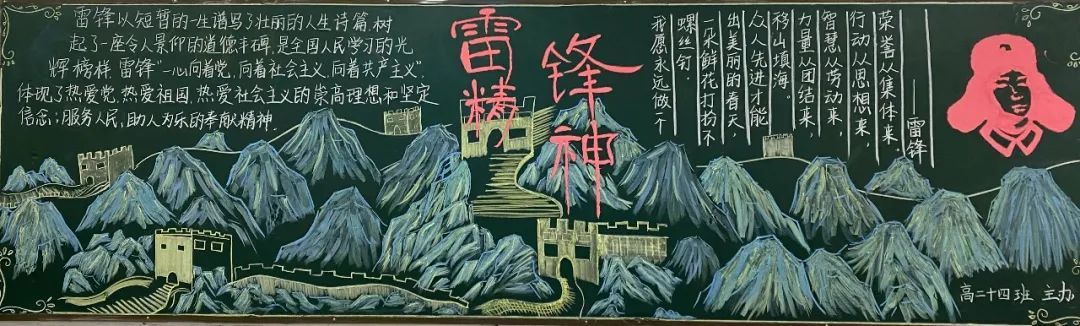 雷锋
精神
雷锋以短暂的一生谱写了壮丽的人生诗篇,树
起了一座令人景仰的道德丰碑,是全国人民学习的光
辉榜样.雷锋“一心向着党,向着社会主义,向着共产主义”,
体现了热爱党,热爱祖国,热爱社会主义的崇高理想和坚定
信念;服务人民,助人为乐的奉献精神.
我愿永远做一个
螺丝钉。
一朵鲜花打扮不
出美丽的春天,
众人先进才能
移山填海。
力量从团结来,
智慧从劳动来,
行动从思想来,
荣誉从集体来。
——雷锋
高二十四班 主办